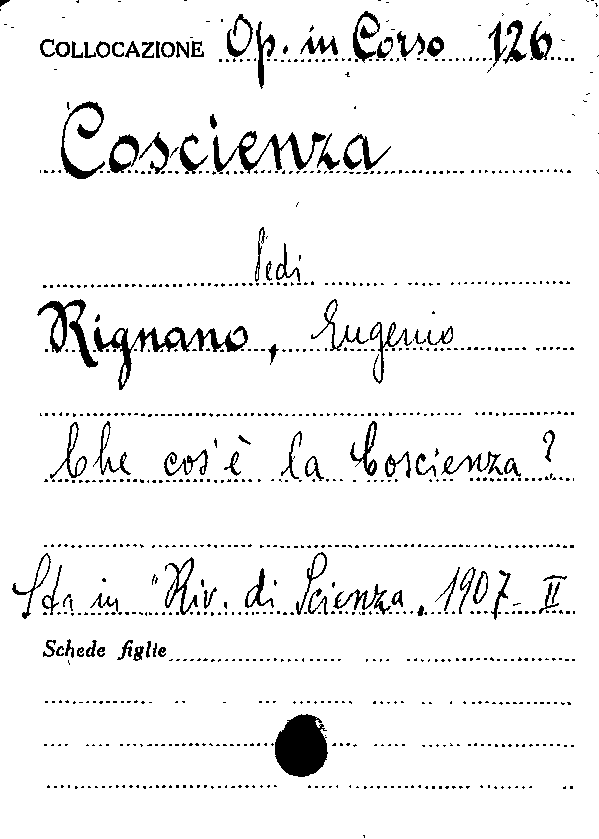 COLLOCAZIONE Op. in Corso 126
Coscienza
Vedi
Rignano, Eugenio
Che cos'è la Coscienza?
Sta in "Riv. di Scienza, 1907 - II
Schede figlie